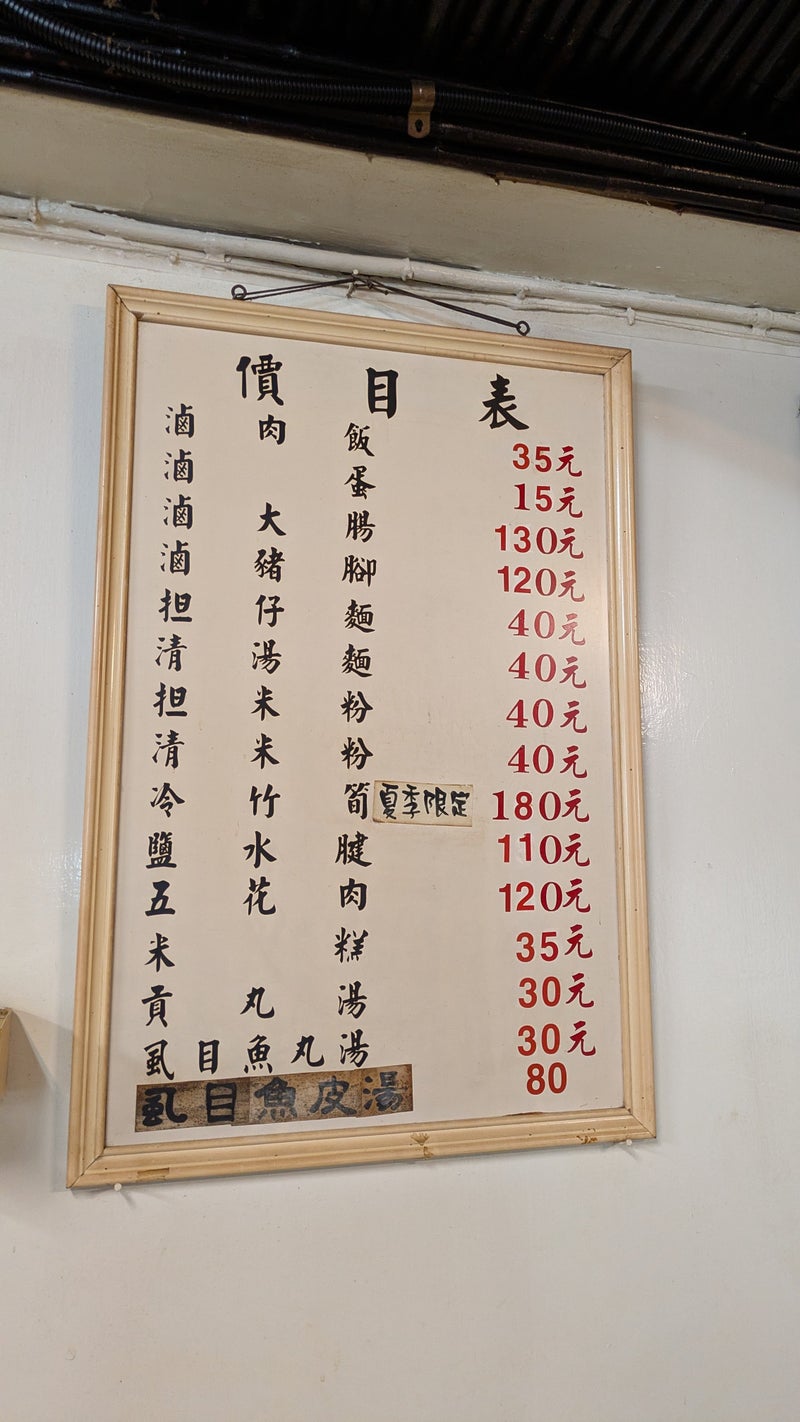 價目表
滷肉飯 35元
滷蛋 15元
滷大腸 130元
滷豬腳 120元
担仔麵 40元
清湯麵 40元
担米粉 40元
清米粉 40元
冷竹筍 夏季限定 180元
鹽水腱 110元
五花肉 120元
米糕 35元
貢丸湯 30元
虱目魚丸湯 30元
虱目魚皮湯 80